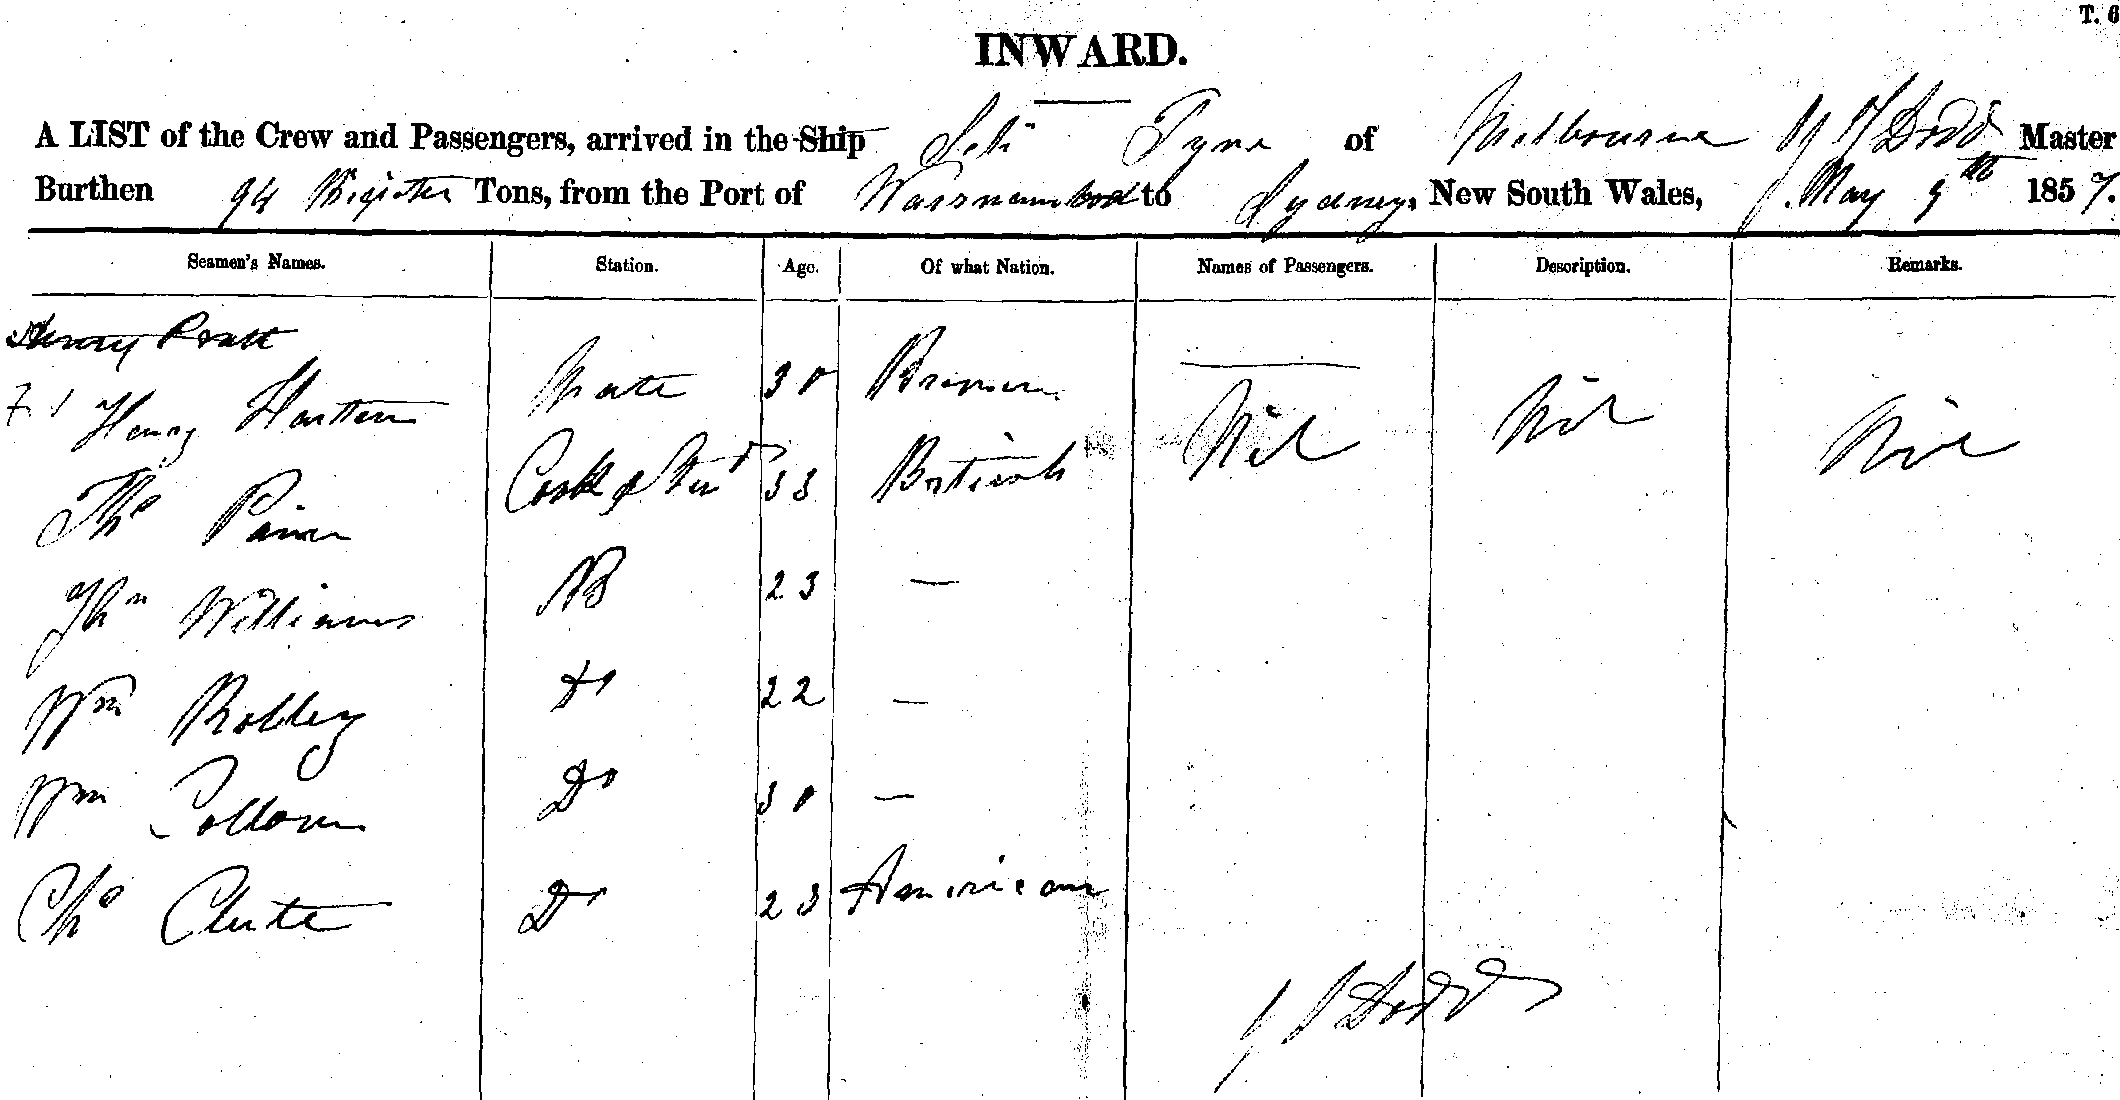 T. 6
INWARD.
A LIST of the Crew and Passengers, arrived in the Ship Tyne of Melbourne Dodd Master
Burthen 94 Register Tons, from the Port of Warrnambool to Sydney, New South Wales, May 9th 1857.
Seamen's Names. Station. Age. Of what Nation. Names of Passengers. Description. Remarks.
Henry Pratt
Henry Mate 30 Bremen Nil Nil Nil
Thos Cook & Stewd 33 British
Jhn Williams AB 23 —
Wm Robley Do 22 —
Wm Do 30 —
Chs Clute Do 23 American
Dodd